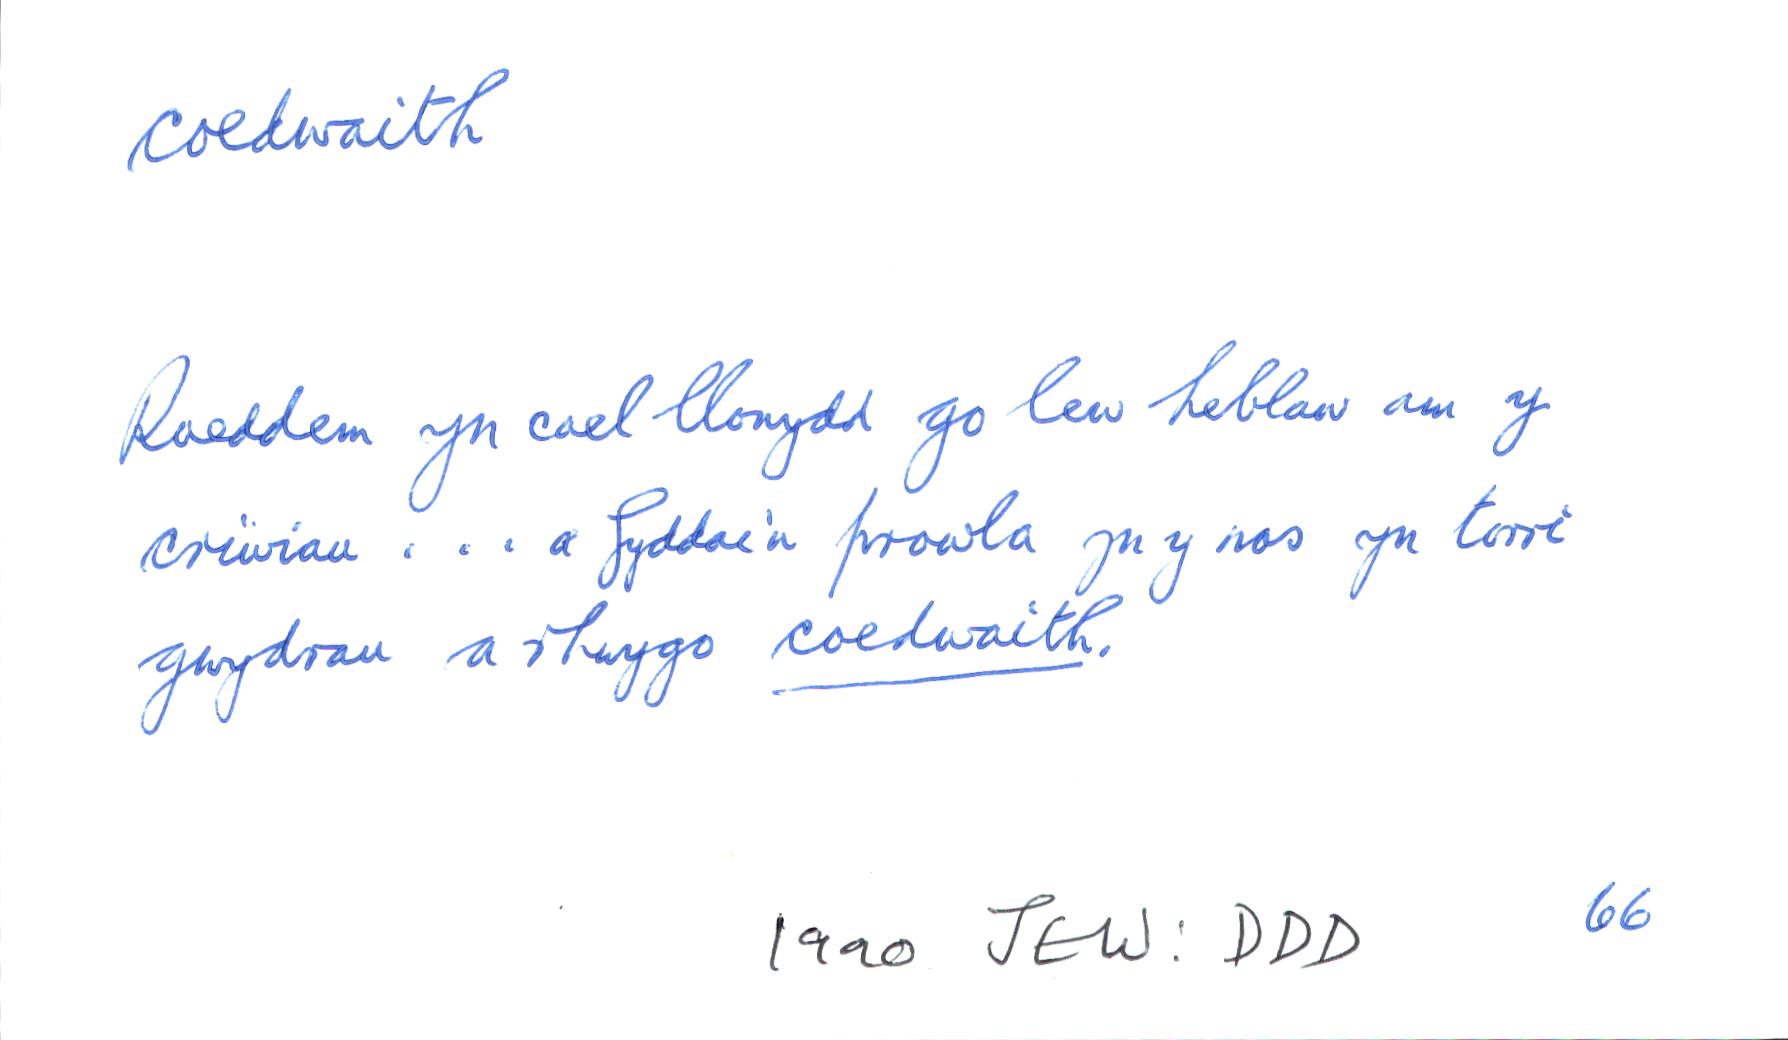 coedwaith
Roeddem yn cael llonydd go lew heblaw am y
criwiau . . . a fyddai'n prowla yn y nos yn torri
gwydrau a rhwygo coedwaith.
1990 JEW: DDD 66